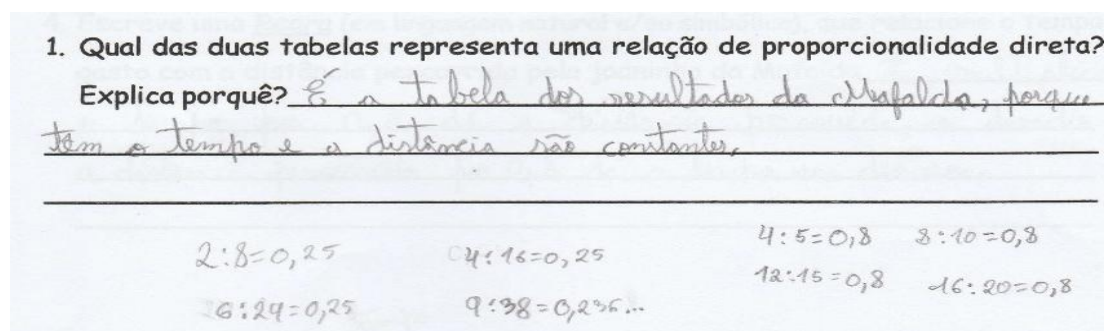 1. Qual das duas tabelas representa uma relação de proporcionalidade direta?
Explica porquê? É a tabela dos resultados da Mafalda, porque
tem o tempo e a distância são constantes.
2:8=0,25
4:16=0,25
4:5=0,8
8:10=0,8
6:24=0,25
9:38=0,236...
12:15=0,8
16:20=0,8